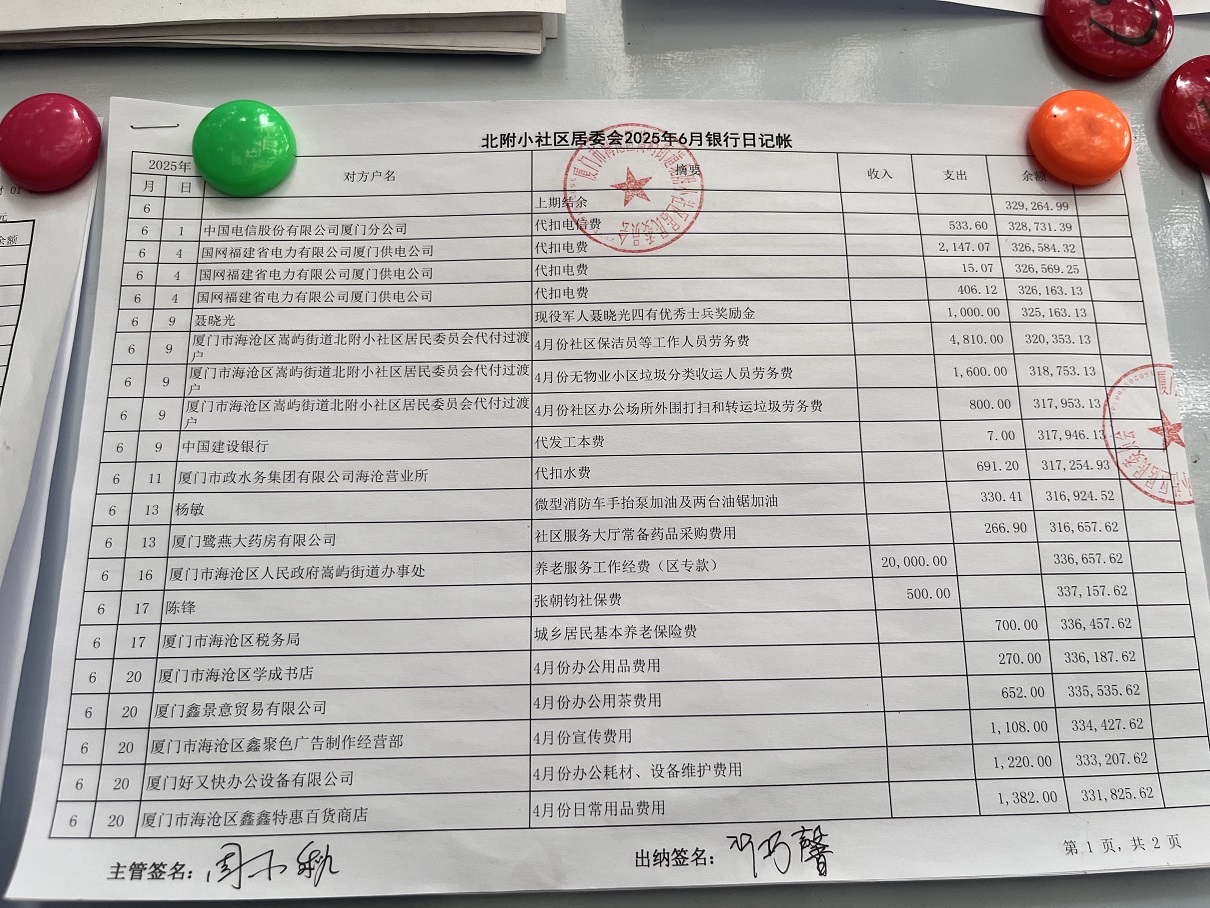 北附小社区居委会2025年6月银行日记帐
2025年 对方户名 摘要 收入 支出 余额
月 日
6 上期结余 329,264.99
6 1 中国电信股份有限公司厦门分公司 代扣电信费 533.60 328,731.39
6 4 国网福建省电力有限公司厦门供电公司 代扣电费 2,147.07 326,584.32
6 4 国网福建省电力有限公司厦门供电公司 代扣电费 15.07 326,569.25
6 4 国网福建省电力有限公司厦门供电公司 代扣电费 406.12 326,163.13
6 9 聂晓光 现役军人聂晓光四有优秀士兵奖励金 1,000.00 325,163.13
6 9 厦门市海沧区嵩屿街道北附小社区居民委员会代付过渡 4月份社区保洁员等工作人员劳务费 4,810.00 320,353.13
户
6 9 厦门市海沧区嵩屿街道北附小社区居民委员会代付过渡 4月份无物业小区垃圾分类收运人员劳务费 1,600.00 318,753.13
户
6 9 厦门市海沧区嵩屿街道北附小社区居民委员会代付过渡 4月份社区办公场所外围打扫和转运垃圾劳务费 800.00 317,953.13
户
6 9 中国建设银行 代发工本费 7.00 317,946.13
6 11 厦门市政水务集团有限公司海沧营业所 代扣水费 691.20 317,254.93
6 13 杨敏 微型消防车手抬泵加油及两台油锯加油 330.41 316,924.52
6 13 厦门鹭燕大药房有限公司 社区服务大厅常备药品采购费用 266.90 316,657.62
6 16 厦门市海沧区人民政府嵩屿街道办事处 养老服务工作经费（区专款） 20,000.00 336,657.62
6 17 陈锋 张朝钧社保费 500.00 337,157.62
6 17 厦门市海沧区税务局 城乡居民基本养老保险费 700.00 336,457.62
6 20 厦门市海沧区学成书店 4月份办公用品费用 270.00 336,187.62
6 20 厦门鑫景意贸易有限公司 4月份办公用茶费用 652.00 335,535.62
6 20 厦门市海沧区鑫聚色广告制作经营部 4月份宣传费用 1,108.00 334,427.62
6 20 厦门好又快办公设备有限公司 4月份办公耗材、设备维护费用 1,220.00 333,207.62
6 20 厦门市海沧区鑫鑫特惠百货商店 4月份日常用品费用 1,382.00 331,825.62
主管签名： 出纳签名：
第 1 页, 共 2 页